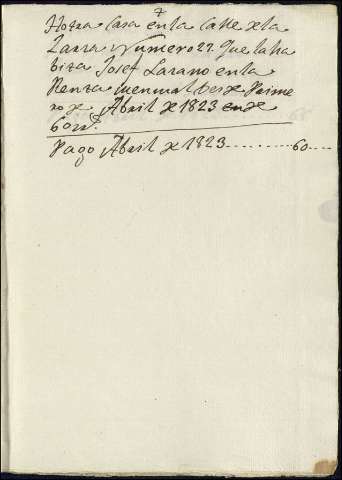 7
Hotra Casa en la Calle de la
Zarza Numero 22 que la ha
bita Josef Lazano en la
Renta mensual desde Prime
ro de Abril de 1823 en de
60 rs.
Pago Abril de 1823 .......... 60 ....